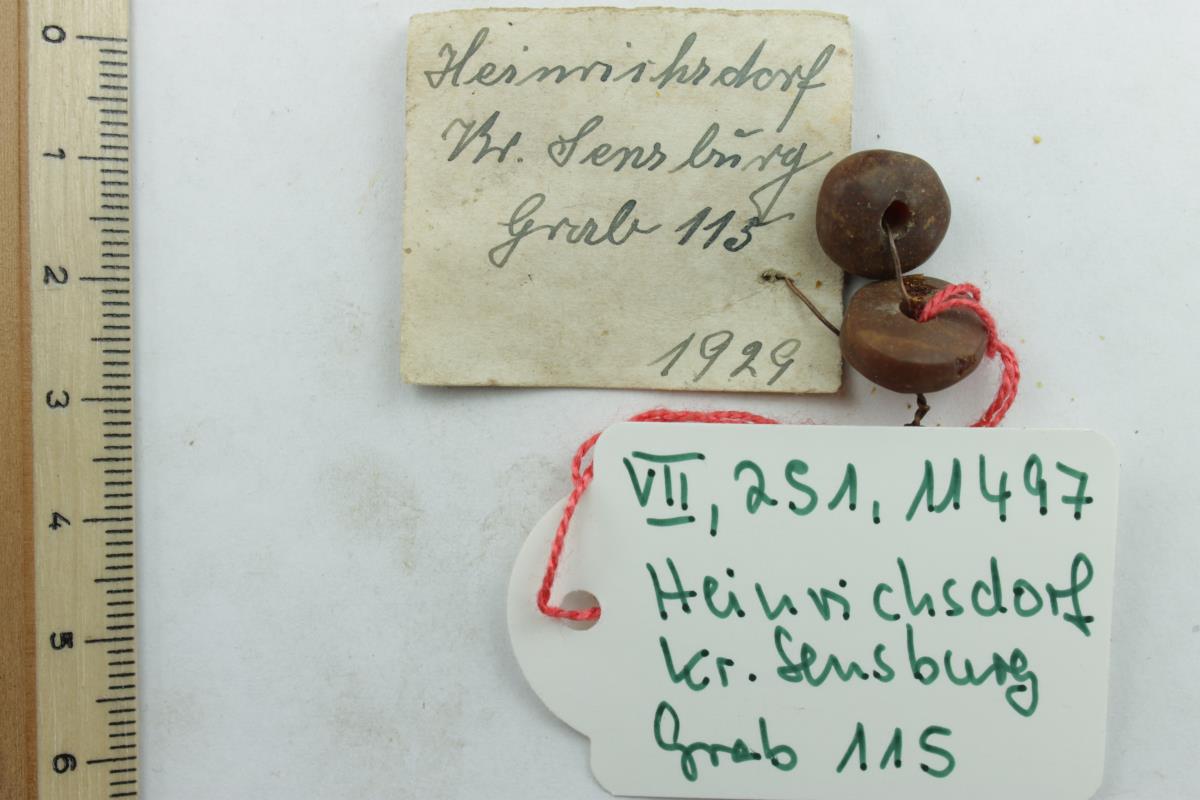 Heinrichsdorf
Kr. Sensburg
Grab 115
1929
VII, 251, 11497
Heinrichsdorf
Kr. Sensburg
Grab 115
0
1
2
3
4
5
6